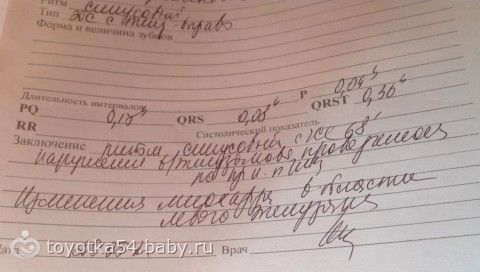 Ритм синусовый
Тип ЭОС с тенд. вправо
Форма и величина зубцов
Длительность интервалов
P 0,09"
PQ 0,18" QRS 0,08" QRST 0,36"
RR Систолический показатель
Заключение ритм синусовый с ЧСС 68'
нарушения в/желудочков проведения
по пр. н. п. Гиса
Изменения миокарда в области
левого желудочка
Врач
toyotka54.baby.ru